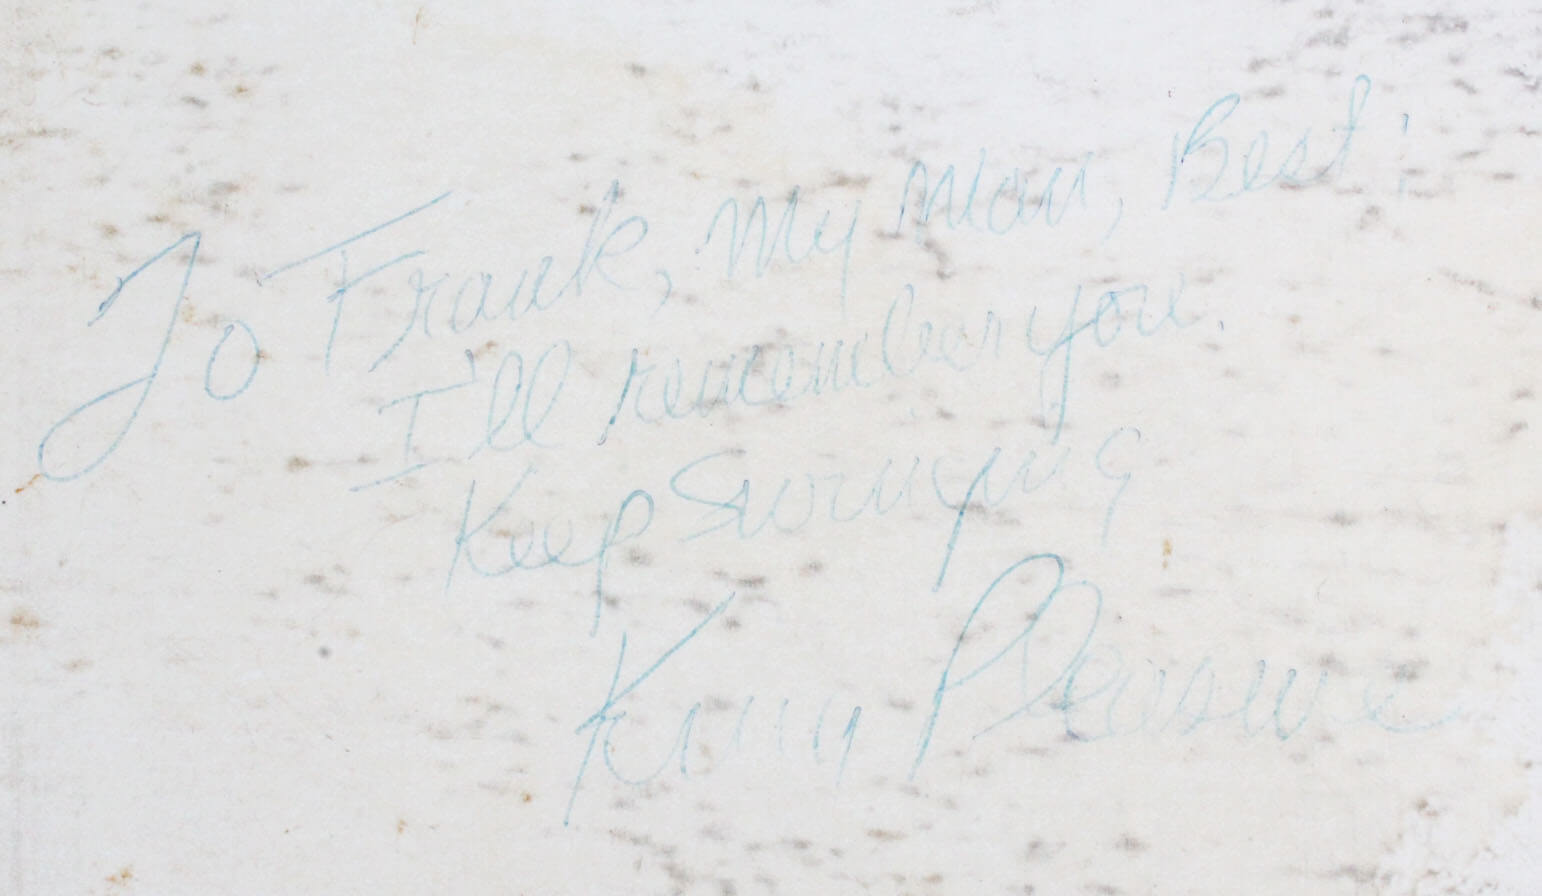 To Frank, My Man, Best!
I'll remember you.
Keep Swinging
King Pleasure